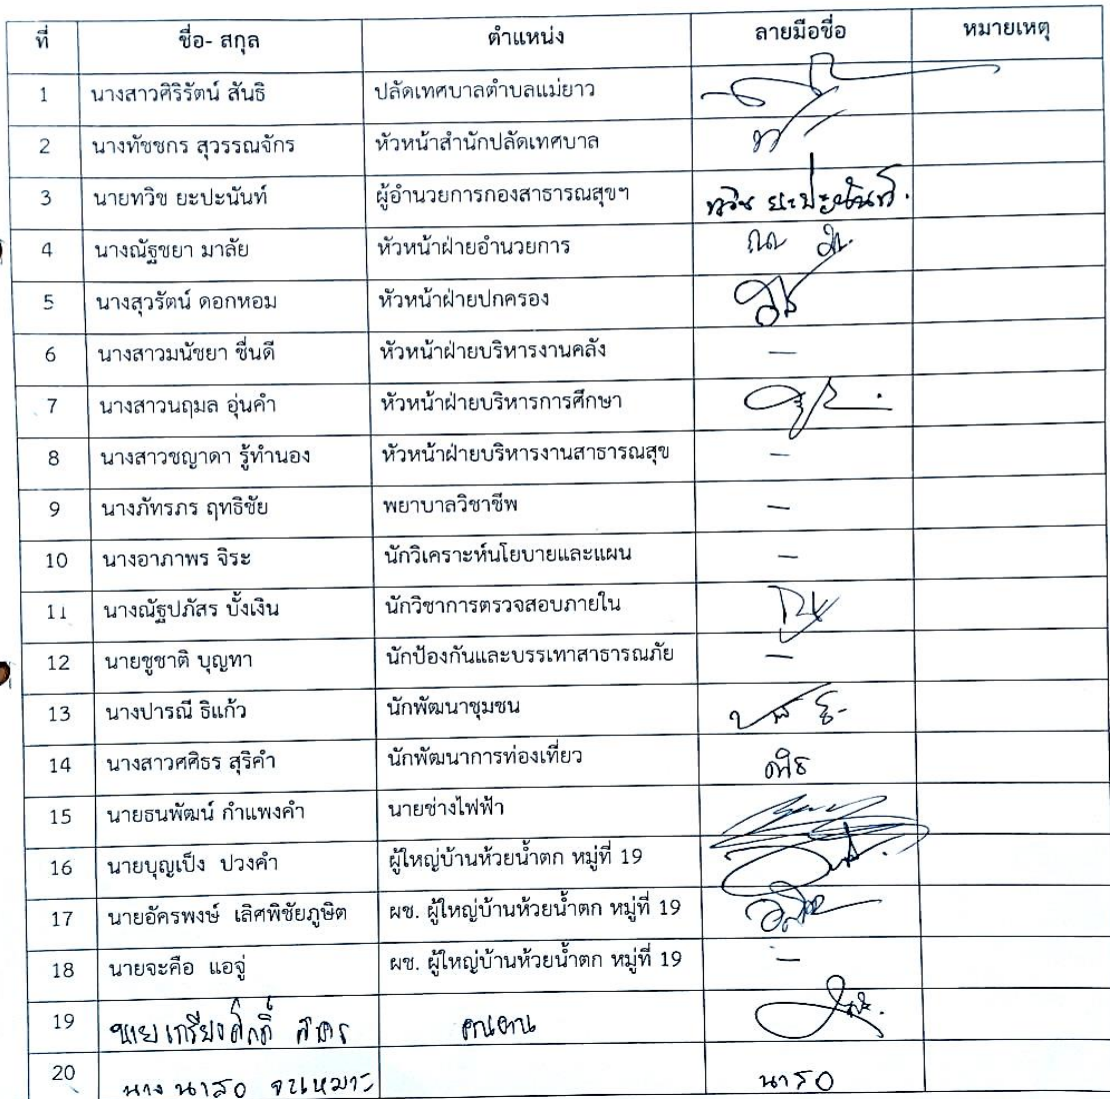 ที่ ชื่อ- สกุล ตำแหน่ง ลายมือชื่อ หมายเหตุ
1 นางสาวศิริรัตน์ สันธิ ปลัดเทศบาลตำบลแม่ยาว
2 นางทัชชกร สุวรรณจักร หัวหน้าสำนักปลัดเทศบาล
3 นายทวิช ยะปะนันท์ ผู้อำนวยการกองสาธารณสุขฯ ทวิช ยะปะนันท์.
4 นางณัฐชยา มาลัย หัวหน้าฝ่ายอำนวยการ
5 นางสุวรัตน์ ดอกหอม หัวหน้าฝ่ายปกครอง
6 นางสาวมนัชยา ชื่นดี หัวหน้าฝ่ายบริหารงานคลัง –
7 นางสาวนฤมล อุ่นคำ หัวหน้าฝ่ายบริหารการศึกษา
8 นางสาวชญาดา รู้ทำนอง หัวหน้าฝ่ายบริหารงานสาธารณสุข –
9 นางภัทรภร ฤทธิชัย พยาบาลวิชาชีพ –
10 นางอาภาพร จิระ นักวิเคราะห์นโยบายและแผน –
11 นางณัฐปภัสร บั้งเงิน นักวิชาการตรวจสอบภายใน
12 นายชูชาติ บุญทา นักป้องกันและบรรเทาสาธารณภัย –
13 นางปารณี ธิแก้ว นักพัฒนาชุมชน
14 นางสาวศศิธร สุริคำ นักพัฒนาการท่องเที่ยว
15 นายธนพัฒน์ กำแพงคำ นายช่างไฟฟ้า
16 นายบุญเป็ง ปวงคำ ผู้ใหญ่บ้านห้วยน้ำตก หมู่ที่ 19
17 นายอัครพงษ์ เลิศพิชัยภูษิต ผช. ผู้ใหญ่บ้านห้วยน้ำตก หมู่ที่ 19
18 นายจะคือ แอจู่ ผช. ผู้ใหญ่บ้านห้วยน้ำตก หมู่ที่ 19 –
19 นาย เกรียงศักดิ์
20 นาง นาสอ จะเหมาะ นาสอ